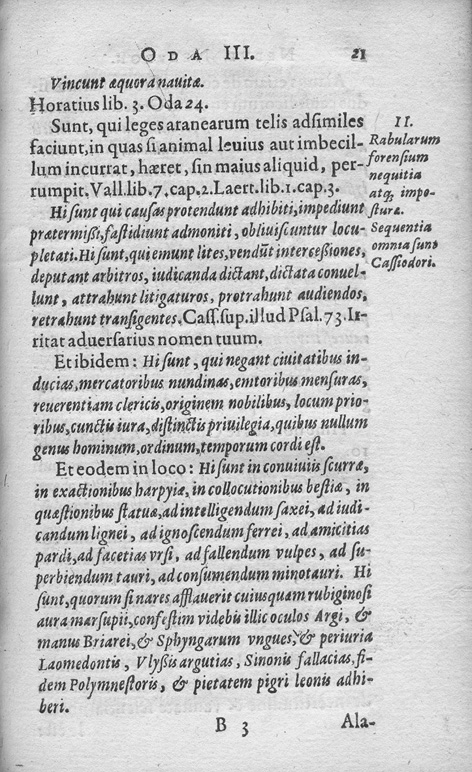 ODA III. 21
Vincunt æquora nauitæ.
Horatius lib. 3. Oda 24.
Sunt, qui leges aranearum telis adsimiles
faciunt, in quas si animal leuius aut imbecil-
lum incurrat, hæret, sin maius aliquid, per-
rumpit. Vall. lib. 7, cap. 2. Laert. lib. 1. cap. 3.
Hi sunt qui causas protendunt adhibiti, impediunt
prætermißi, fastidiunt admoniti, obliuiscuntur locu-
pletati. Hi sunt, qui emunt lites, vendũt intercessiones,
deputant arbitros, iudicanda dictant, dictata conuel-
lunt, attrahunt litigaturos, protrahunt audiendos,
retrahunt transigentes. Cass. sup. illud Psal. 73. Ir-
ritat aduersarius nomen tuum.
Et ibidem: Hi sunt, qui negant ciuitatibus in-
ducias, mercatoribus nundinas, emtoribus mensuras,
reuerentiam clericis, originem nobilibus, locum prio-
ribus, cunctis iura, distinctis priuilegia, quibus nullum
genus hominum, ordinum, temporum cordi est.
Et eodem in loco: Hi sunt in conuiuiis scurræ,
in exactionibus harpyiæ, in collocutionibus bestiæ, in
quæstionibus statuæ, ad intelligendum saxei, ad iudi-
candum lignei, ad ignoscendum ferrei, ad amicitias
pardi, ad facetias vrsi, ad fallendum vulpes, ad su-
perbiendum tauri, ad consumendum minotauri. Hi
sunt, quorum si nares afflauerit cuiusquam rubiginosi
aura marsupii, confestim videbis illic oculos Argi, &
manus Briarei, & Sphyngarum vngues, & periuria
Laomedontis, Vlyßis argutias, Sinonis fallacias, fi-
dem Polymnestoris, & pietatem pigri leonis adhi-
beri.
B 3 Ala-
II.
Rabularum
forensium
nequitia
atq; impo-
sturæ.
Sequentia
omnia sunt
Cassiodori.